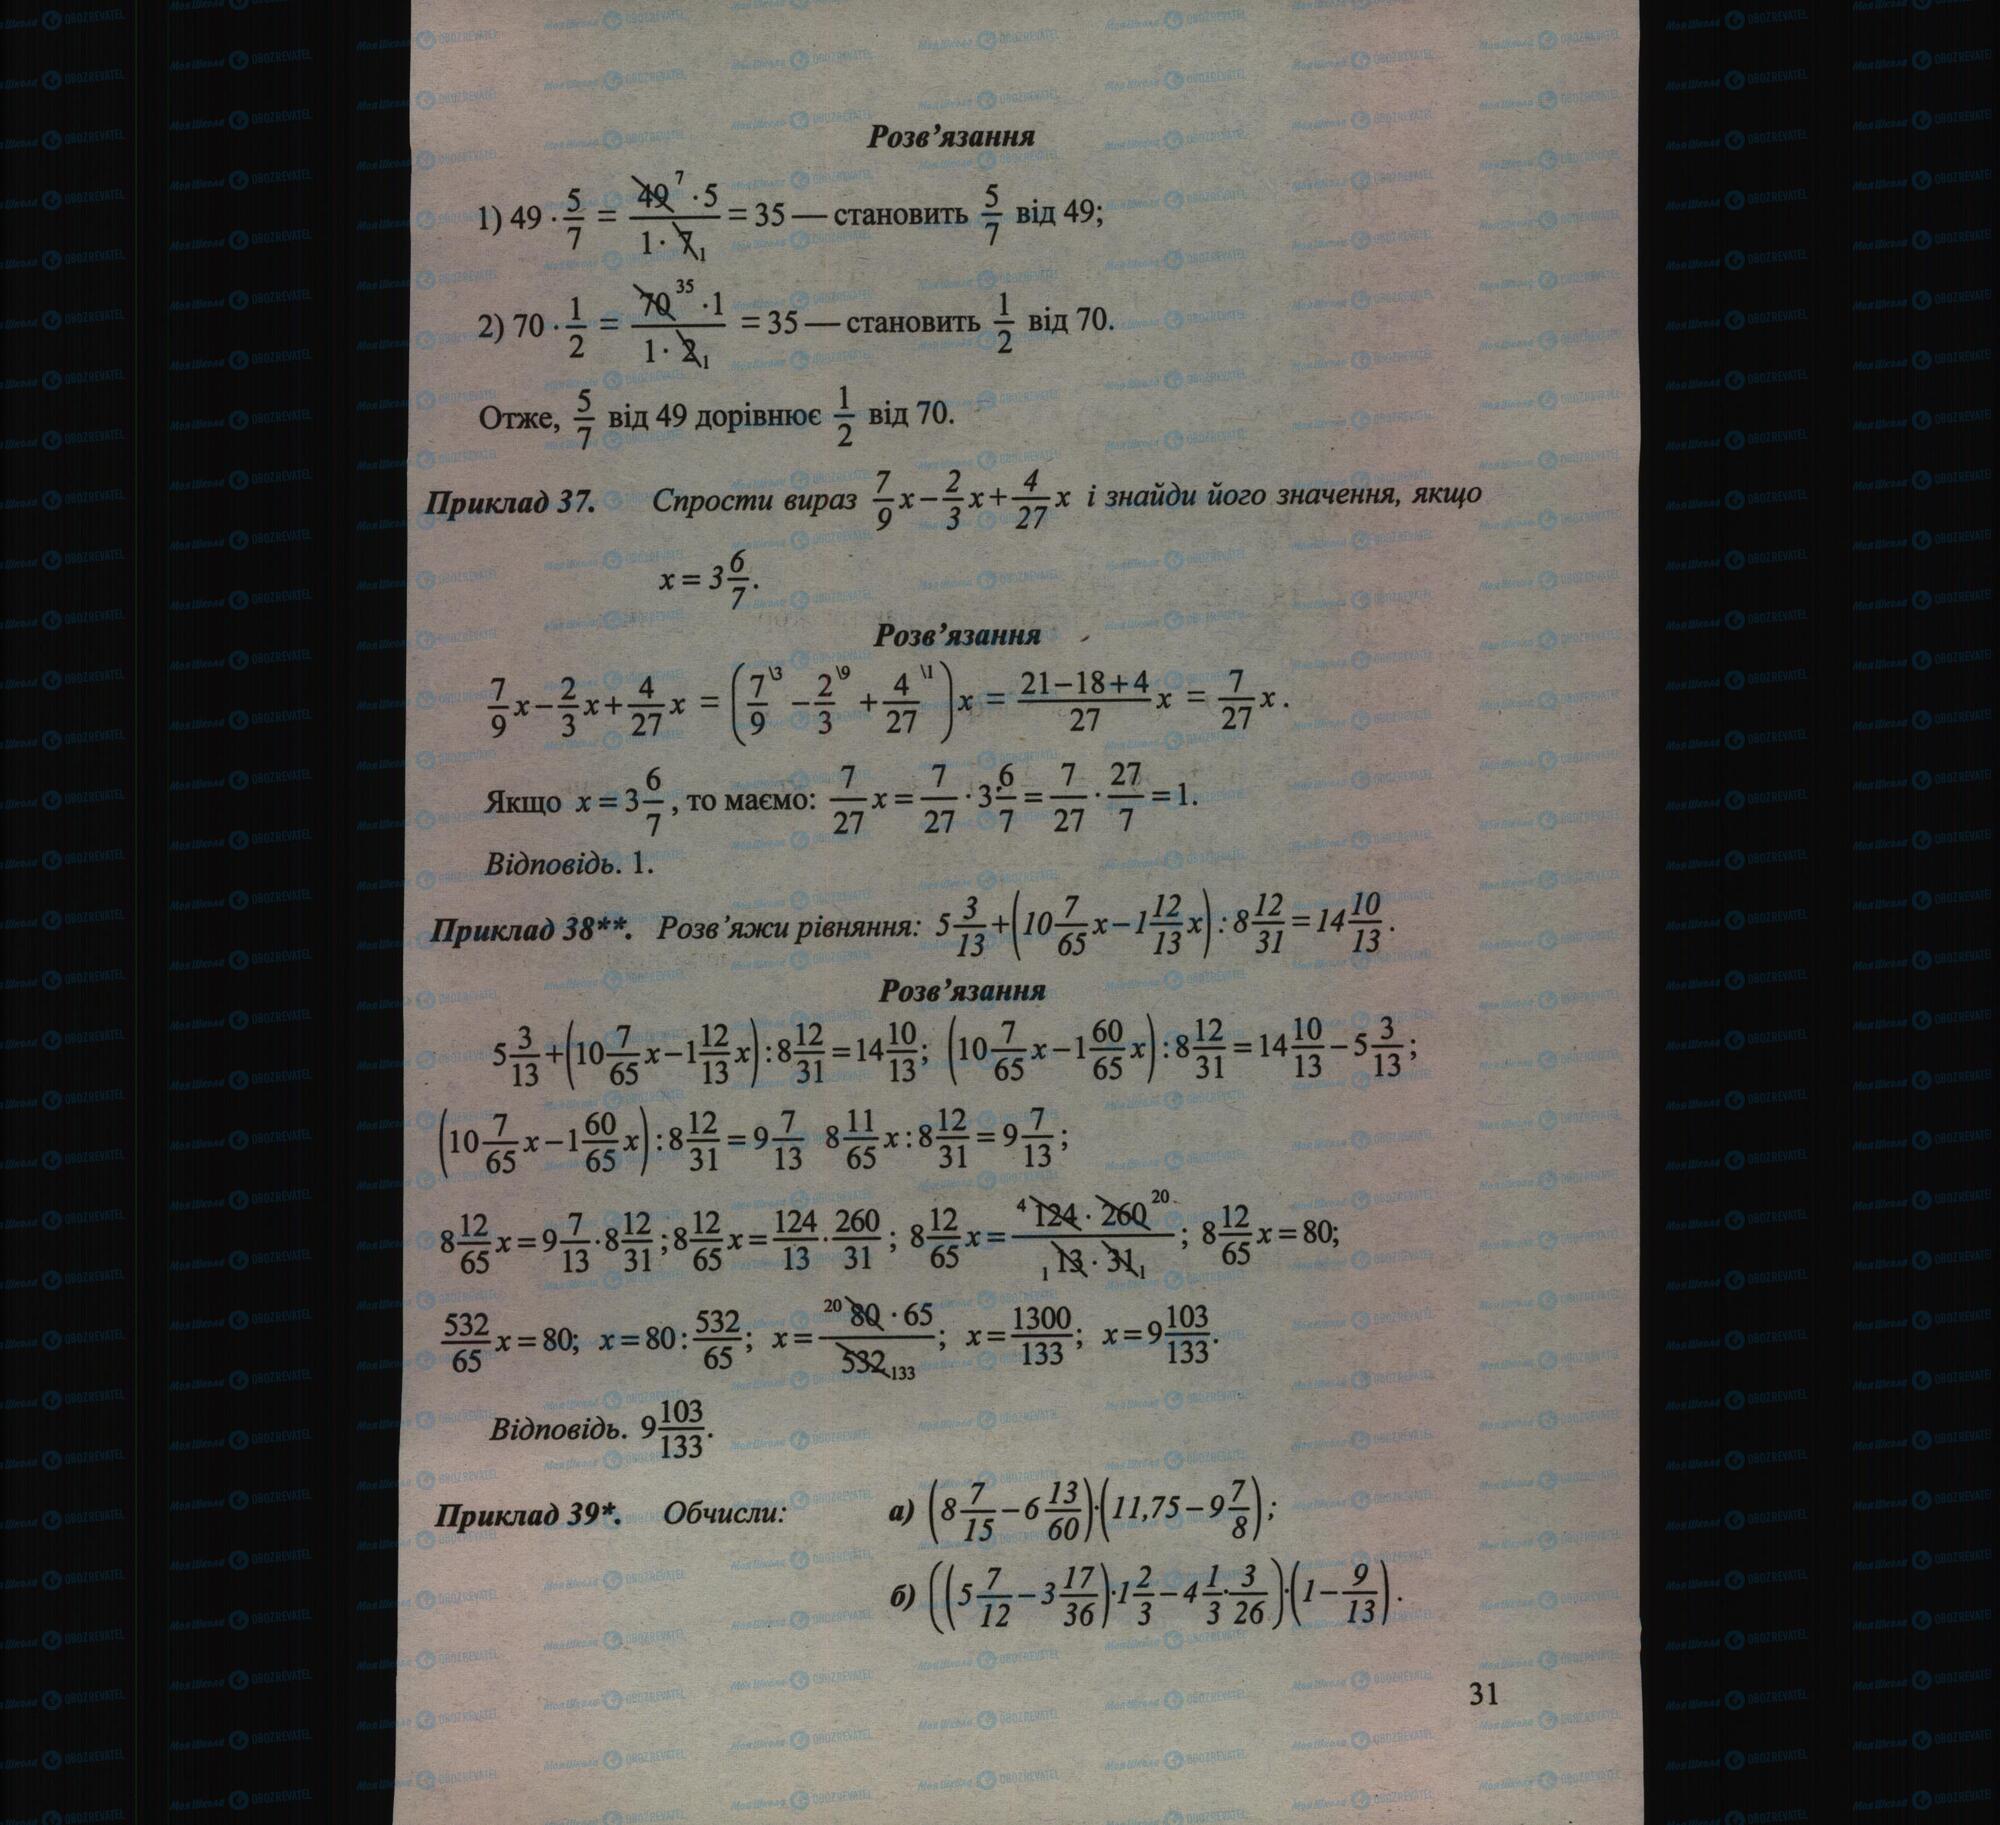 Розв’язання
1) 49 · 5/7 = 49⁷ · 5 / 1 · 7₁ = 35 — становить 5/7 від 49;
2) 70 · 1/2 = 70³⁵ · 1 / 1 · 2₁ = 35 — становить 1/2 від 70.
Отже, 5/7 від 49 дорівнює 1/2 від 70.
Приклад 37. Спрости вираз 7/9 x − 2/3 x + 4/27 x і знайди його значення, якщо
x = 3 6/7.
Розв’язання
7/9 x − 2/3 x + 4/27 x = (7/9 \3 − 2/3 \9 + 4/27 \1) x = 21−18+4/27 x = 7/27 x.
Якщо x = 3 6/7, то маємо: 7/27 x = 7/27 · 3 6/7 = 7/27 · 27/7 = 1.
Відповідь. 1.
Приклад 38**. Розв’яжи рівняння: 5 3/13 + (10 7/65 x − 1 12/13 x) : 8 12/31 = 14 10/13.
Розв’язання
5 3/13 + (10 7/65 x − 1 12/13 x) : 8 12/31 = 14 10/13; (10 7/65 x − 1 60/65 x) : 8 12/31 = 14 10/13 − 5 3/13;
(10 7/65 x − 1 60/65 x) : 8 12/31 = 9 7/13 8 11/65 x : 8 12/31 = 9 7/13;
8 12/65 x = 9 7/13 · 8 12/31; 8 12/65 x = 124/13 · 260/31; 8 12/65 x = ⁴124 · 260²⁰ / ₁13 · 31₁; 8 12/65 x = 80;
532/65 x = 80; x = 80 : 532/65; x = ²⁰80 · 65 / 532₁₃₃; x = 1300/133; x = 9 103/133.
Відповідь. 9 103/133.
Приклад 39*. Обчисли: а) (8 7/15 − 6 13/60) · (11,75 − 9 7/8);
б) ((5 7/12 − 3 17/36) · 1 2/3 − 4 1/3 · 3/26) · (1 − 9/13).
31